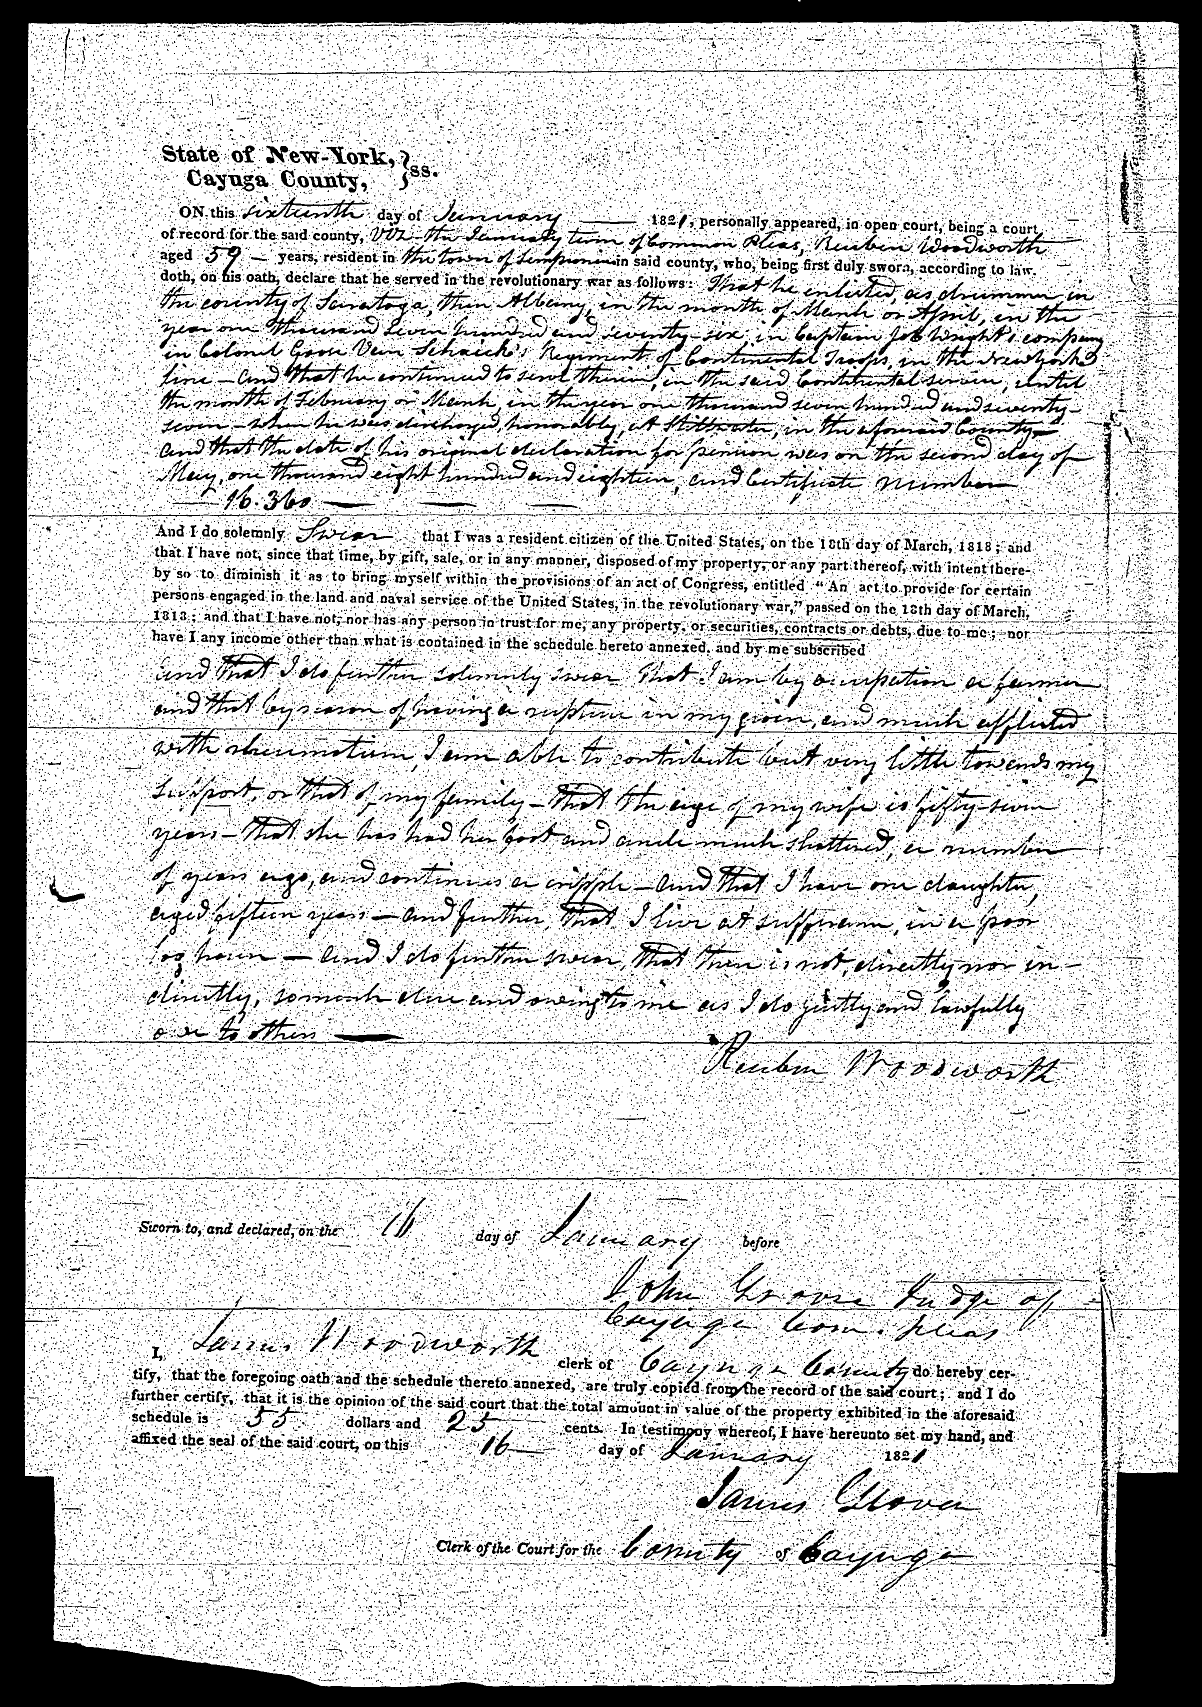 State of New-York, } ss.
Cayuga County,
ON this sixteenth day of January — 1821, personally appeared, in open court, being a court
of record for the said county, viz- the January term of Common Pleas, Reuben Woodworth
aged 59 — years, resident in the town of Sempronius in said county, who, being first duly sworn, according to law,
doth, on his oath, declare that he served in the revolutionary war as follows: That he enlisted, as drummer, in
the county of Saratoga, then Albany, in the month of March or April, in the
year one thousand seven hundred and seventy-six, in Captain Job Wright's company
in Colonel Goose Van Schaick's Regiment of Continental Troops, in the New York
line — and that he continued to serve therein, in the said Continental service, until
the month of February or March, in the year one thousand seven hundred and seventy-
seven — when he was discharged, honorably, at Stillwater, in the aforesaid County —
and that the date of his original declaration for pension was on the second day of
May, one thousand eight hundred and eighteen, and Certificate number
— 16.360 — — —
And I do solemnly Swear that I was a resident citizen of the United States, on the 18th day of March, 1818; and
that I have not, since that time, by gift, sale, or in any manner, disposed of my property, or any part thereof, with intent there-
by so to diminish it as to bring myself within the provisions of an act of Congress, entitled "An act to provide for certain
persons engaged in the land and naval service of the United States, in the revolutionary war," passed on the 18th day of March,
1818; and that I have not, nor has any person in trust for me, any property, or securities, contracts or debts, due to me; nor
have I any income other than what is contained in the schedule hereto annexed, and by me subscribed
and that I do further solemnly swear That I am by occupation a farmer
and that by reason of having a rupture in my groin, and much afflicted
with rheumatism, I am able to contribute but very little towards my
support, or that of my family — that the age of my wife is fifty-seven
years — that she has had her foot and ancle much shattered, a number
of years ago, and continues a cripple — and that I have one daughter,
aged fifteen years — and further, that I live at sufferance, in a poor
log house — and I do further swear, that there is not, directly nor in-
directly, so much due and owing to me as I do justly and lawfully
owe to others —
Reuben Woodworth
Sworn to, and declared, on the 16 day of January before
John Grover Judge of
Cayuga Com. pleas
I, James Woodworth clerk of Cayuga County do hereby cer-
tify, that the foregoing oath and the schedule thereto annexed, are truly copied from the record of the said court; and I do
further certify, that it is the opinion of the said court that the total amount in value of the property exhibited in the aforesaid
schedule is 55 dollars and 25 cents. In testimony whereof, I have hereunto set my hand, and
affixed the seal of the said court, on this 16 — day of January 1821
James Glover
Clerk of the Court for the County of Cayuga